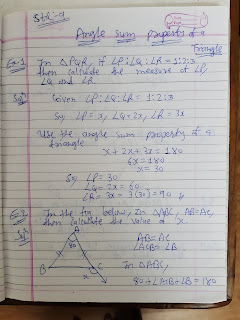 Std:-9
Angle sum property of a
Triangle
Ex:1 In △PQR, if ∠P:∠Q:∠R = 1:2:3
then calculate the measure of ∠P,
∠Q and ∠R.
Solⁿ Given ∠P:∠Q:∠R = 1:2:3
So, ∠P = x, ∠Q = 2x, ∠R = 3x
Use the angle sum property of a
triangle
x + 2x + 3x = 180
6x = 180
x = 30
So, ∠P = 30
∠Q = 2x = 60
∠R = 3x = 3(30) = 90
Ex:2 In the fig below, In △ABC, AB=AC,
then calculate the value of x.
Solⁿ
A
80
B
x
C
AB = AC
∠ACB = ∠B
In △ABC,
80 + ∠ACB + ∠B = 180